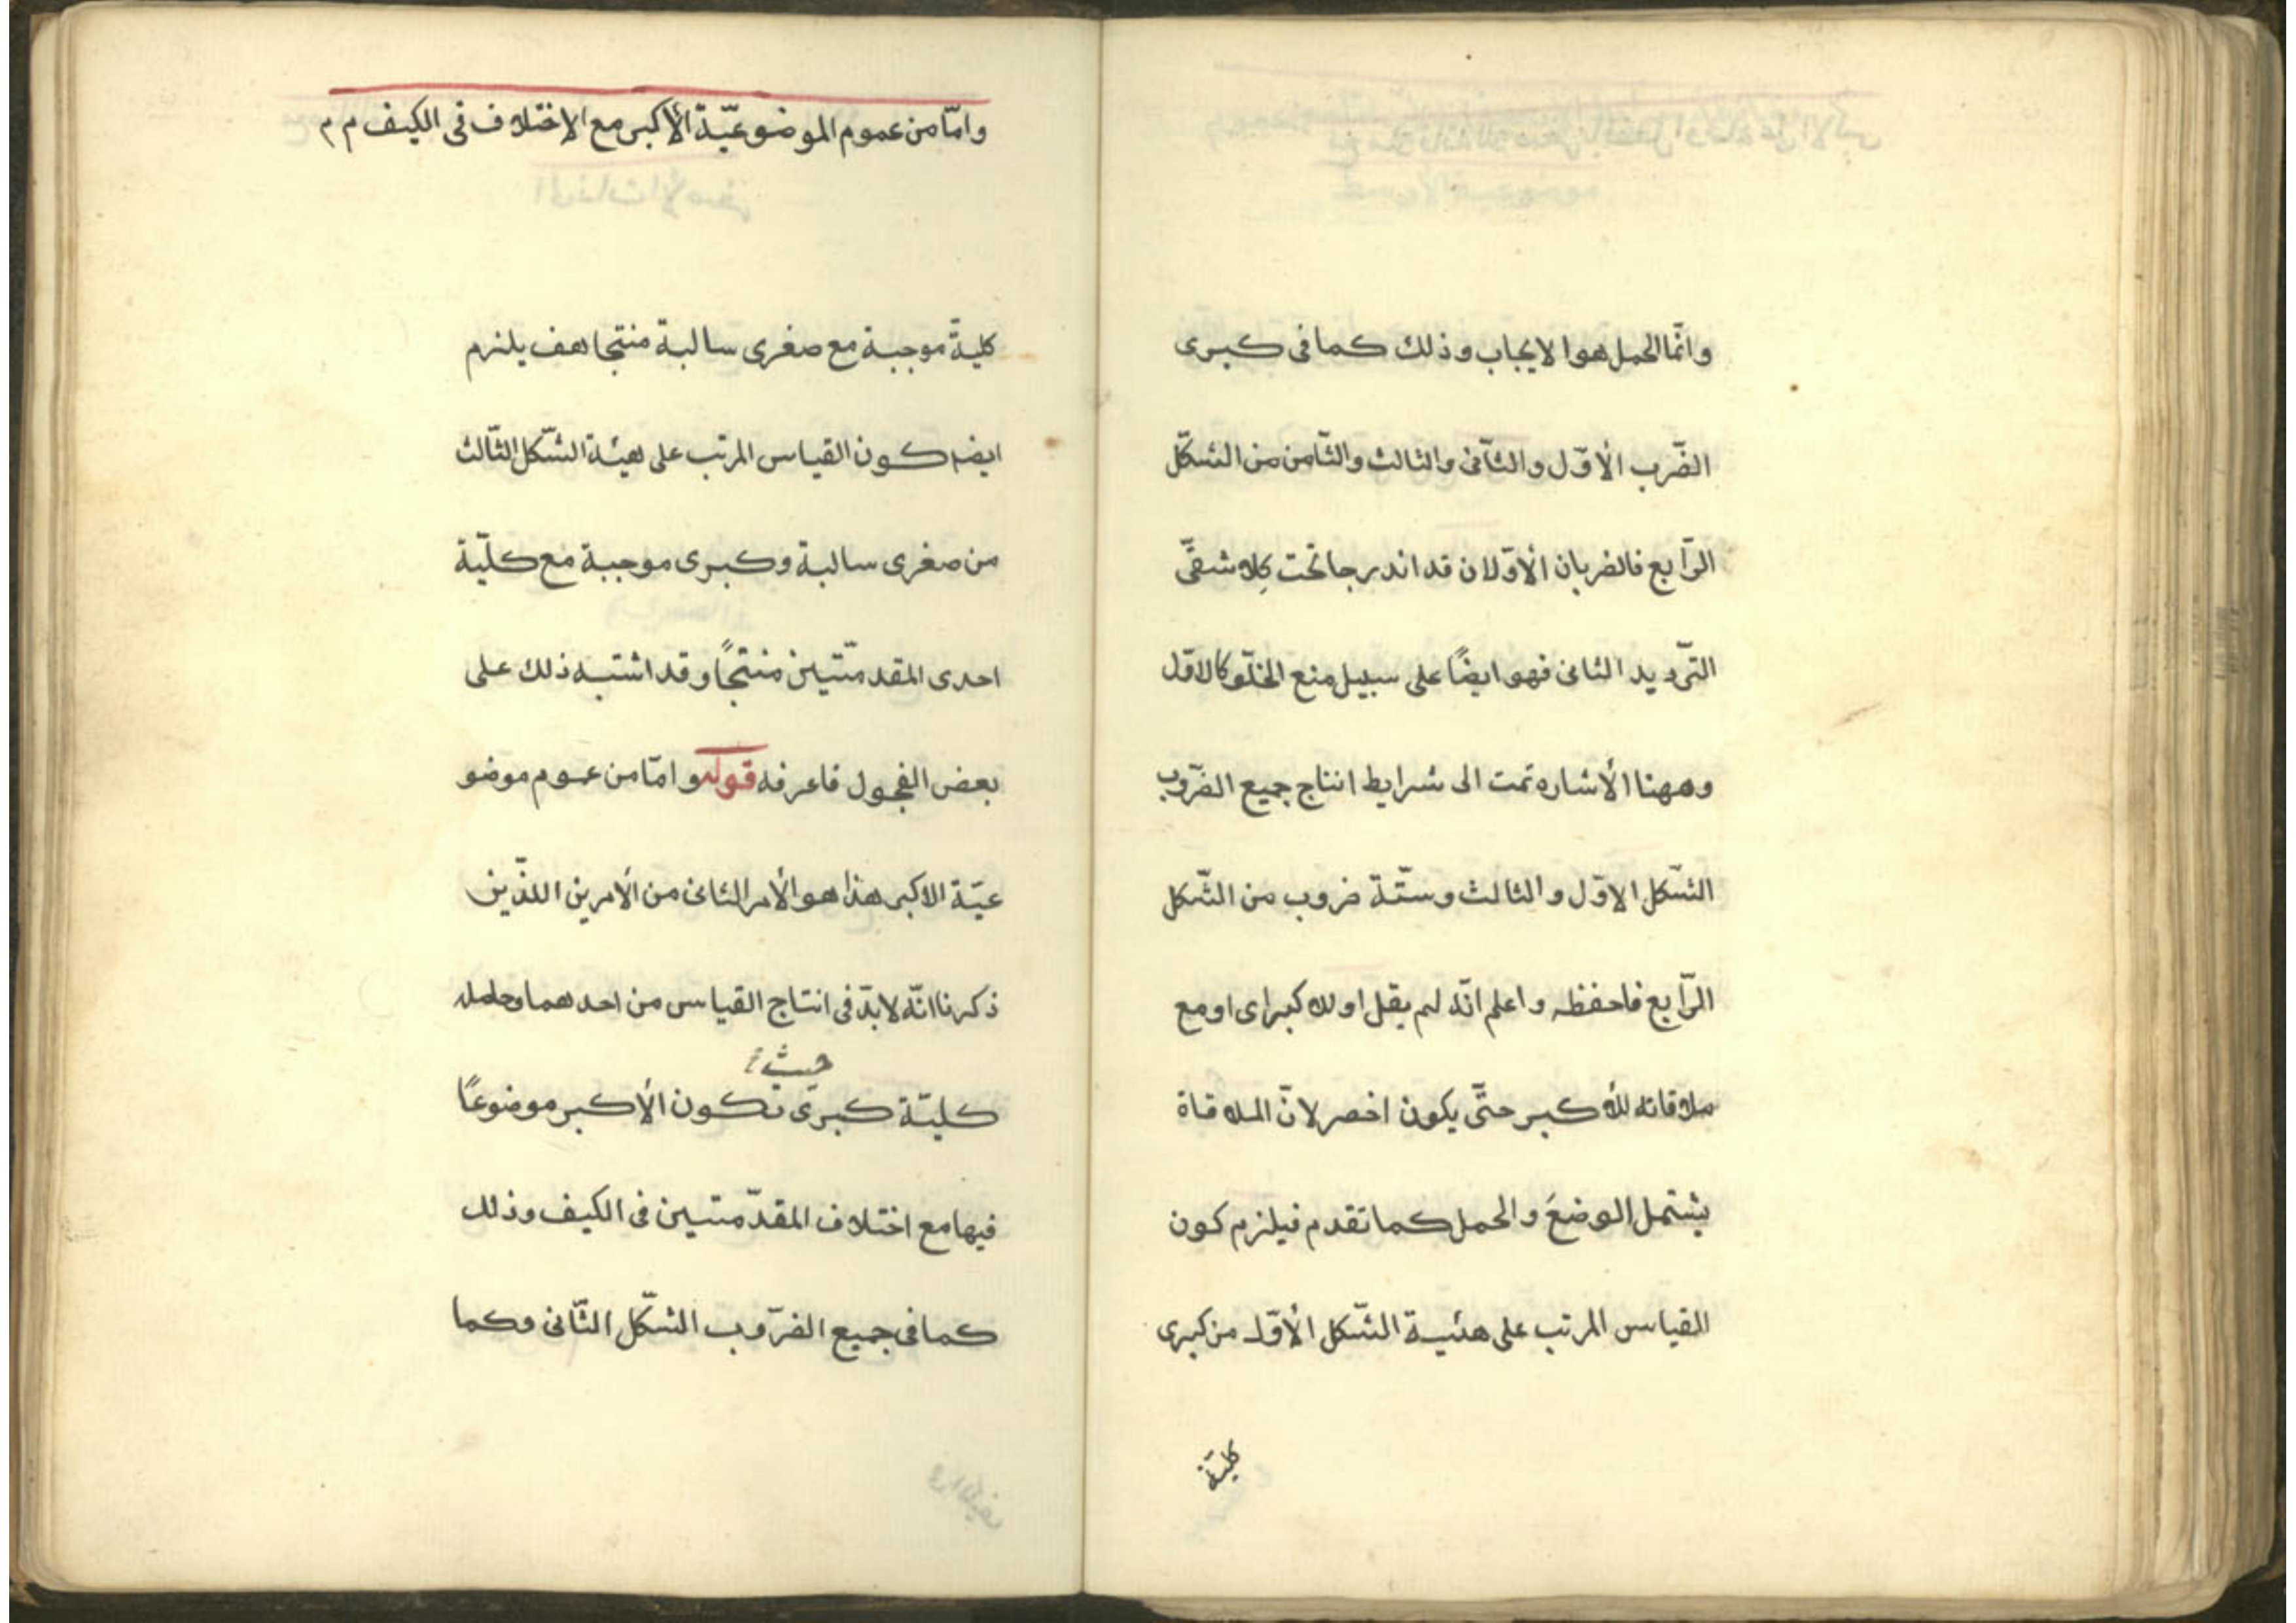 وانّما الحمل هو الايجاب وذلك كما فى كبرى
الضّرب الأوّل والثاّنى والثالث والثاّمن من الشكّل
الرّابع فالضربان الأوّلان قد اندرجا تحت كِلا شقّى
التّرديد الثانى فهو ايضًا على سبيل منع الخلّو كالاوّل
وههنا الأشاره تمت الى شرايط انتاج جميع الضّروب
الشّكل الاوّل والثالث وستّة ضروب من الشّكل
الرّابع فاحفظه واعلم انّه لم يقل اولا كبراى اومع
ملاقاته للأكبر حتّى يكون اخصر لانّ الملاقاة
يشتمل الوضعَ والحمل كما تقدم فيلزم كون
القياس المرتب على هئية الشّكل الأوّل من كبرى
كليّة
وامّا من عموم الموضوعيّة الأكبر مع الاختلاف فى الكيف م م
كليةً موجبة مع صغرى سالبة منتجا هف يلزم
ايضا كون القياس المرتب على هيئة الشّكل الثّالث
من صغرى سالبة وكبرى موجبة مع كليّة
احدى المقدمّتين منتجًا وقد اشتبه ذلك على
بعض الفحول فاعرفه قوله وامّا من عموم موضو
عيّة الاكبر هذا هو الأمر الثانى من الأمرين اللذّين
ذكرنا انّه لابدّ فى انتاج القياس من احدهما وحاصله
حيث
كليّة كبرى تكون الأكبر موضوعًا
فيها مع اختلاف المقدّمتين فى الكيف وذلك
كما فى جميع الضّروب الشّكل الثّانى وكما